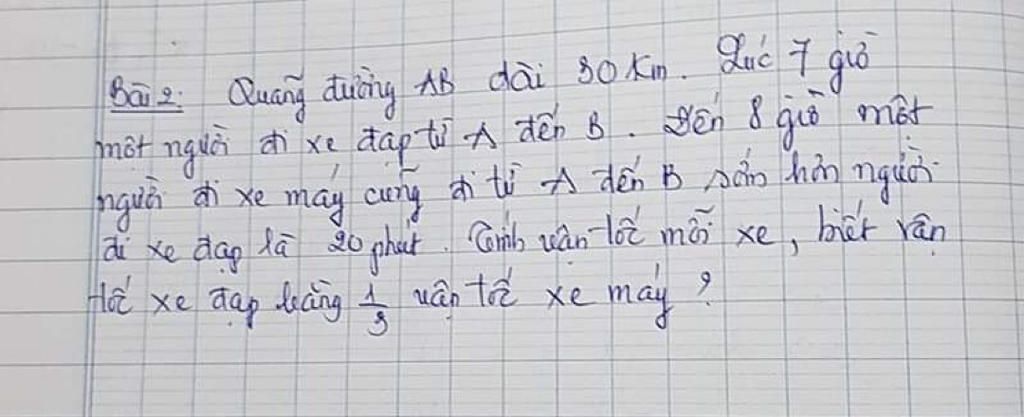 Bài 2: Quãng đường AB dài 30 Km. Lúc 7 giờ
một người đi xe đạp từ A đến B. Đến 8 giờ một
người đi xe máy cũng đi từ A đến B sớm hơn người
đi xe đạp là 20 phút. Tính vận tốc mỗi xe, biết vận
tốc xe đạp bằng 1/3 vận tốc xe máy?